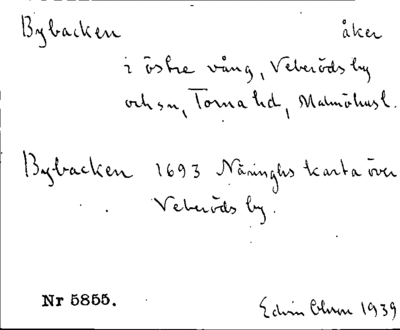 Bybacken åker
i östre vång, Veberöds by
och sn, Torna hd, Malmöhus l.
Bybacken 1693 Näsinghs karta över
Veberöds by.
Nr 5855.
Edvin Ohlson 1939